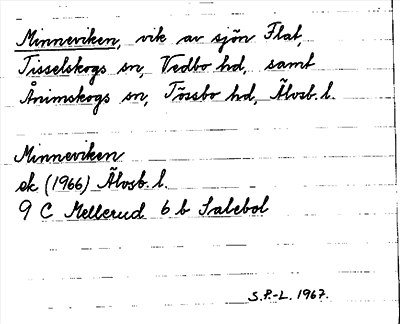 Minneviken, vik av sjön Flat,
Tisselskogs sn, Vedbo hd, samt
Ånimskogs sn, Tössbo hd, Älvsb. l.
Minneviken
ek (1966) Älvsb. l.
9 C Mellerud 6 b Salebol
S.P.-L. 1967.